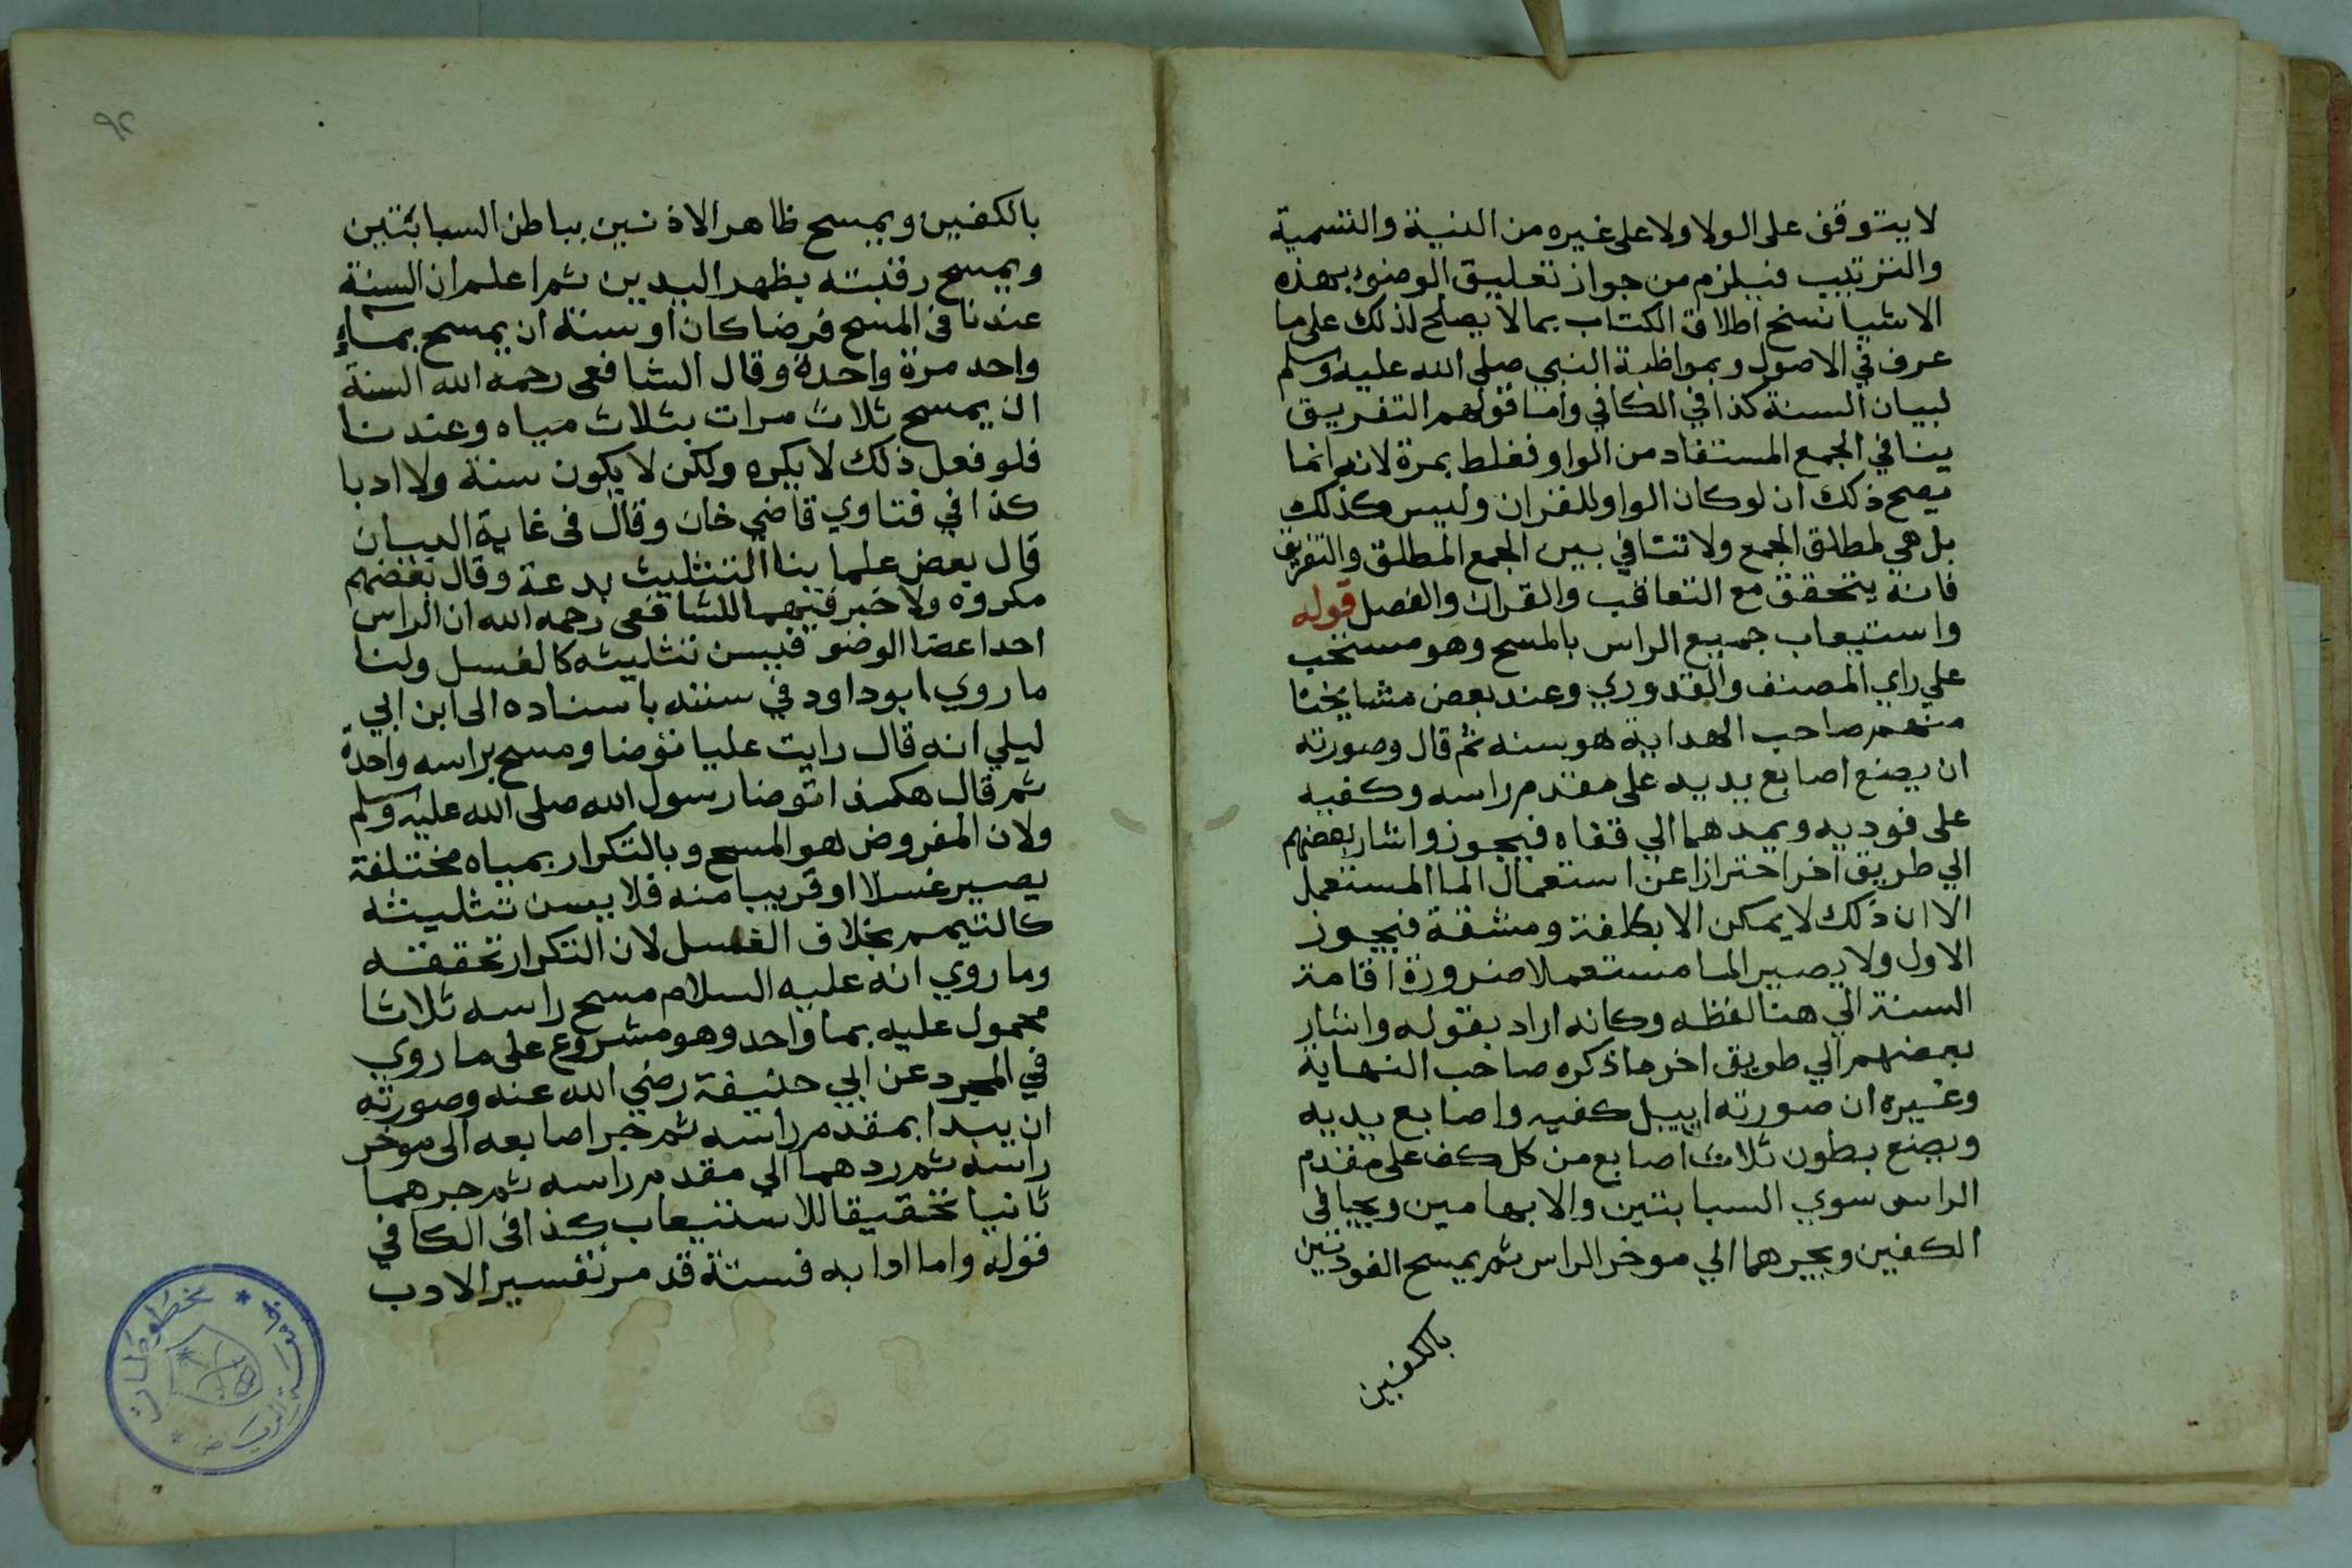 لا يتوقف على الولا ولا على غيره من النية والتسمية
والترتيب فيلزم من جواز تعليق الوضوء بهذه
الاشيا نسخ اطلاق الكتاب بما لا يصلح لذلك على ما
عرف في الاصول وبمواظبة النبي صلى الله عليه وسلم
لبيان السنة كذا في الكافي واما قولهم التفريق
ينافي الجمع المستفاد من الواو فغلط بمرة لانه انما
يصح ذلك ان لو كان الواو للقران وليس كذلك
بل هي لمطلق الجمع ولا تنافي بين الجمع المطلق والتفريق
فانه يتحقق مع التعاقب والقران والفصل قوله
واستيعاب جميع الراس بالمسح وهو مستحب
على راي المصنف والقدوري وعند بعض مشايخنا
منهم صاحب الهداية هو سنة ثم قال وصورته
ان يضع اصابع يديه على مقدم راسه وكفيه
على فوديه ويمدهما الي قفاه فيجوز واشار بعضهم
الي طريق اخر احترازا عن استعمال الما المستعمل
الا ان ذلك لا يمكن الا بكلفة ومشقة فيجوز
الاول ولا يصير الما مستعملا ضرورة اقامة
السنة الي هنا لفظه وكانه اراد بقوله واشار
بعضهم الي طريق اخر ما ذكره صاحب النهاية
وغيره ان صورته ان يبل كفيه واصابع يديه
ويضع بطون ثلاث اصابع من كل كف على مقدم
الراس سوي السبابتين والابهامين ويجافى
الكفين ويجرهما الي موخر الراس ثم يمسح الفودين
بالكفين
٩٢
بالكفين ويمسح ظاهر الاذنين بباطن السبابتين
ويمسح رقبته بظهر اليدين ثم اعلم ان السنة
عندنا في المسح فرضا كان او سنة ان يمسح بماء
واحد مرة واحدة وقال الشافعى رحمه الله السنة
ان يمسح ثلاث مرات بثلاث مياه وعندنا
فلو فعل ذلك لا يكره ولكن لا يكون سنة ولا ادبا
كذا في فتاوي قاضي خان وقال فى غاية البيان
قال بعض علماينا التثليث بدعة وقال بعضهم
مكروه ولا خير فيهما للشافعى رحمه الله ان الراس
احد اعضا الوضو فيسن تثليثه كالغسل ولنا
ما روي ابو داود في سننه باسناده الى ابن ابي
ليلي انه قال رايت عليا توضا ومسح براسه واحدة
ثم قال هكذا توضا رسول الله صلى الله عليه وسلم
ولان المفروض هو المسح وبالتكرار بمياه مختلفة
يصير غسلا او قريبا منه فلا يسن تثليثه
كالتيمم بخلاف الغسل لان التكرار تحققه
وما روي انه عليه السلام مسح راسه ثلاثا
محمول عليه بما واحد وهو مشروع على ما روي
في المجرد عن ابي حنيفة رضي الله عنه وصورته
ان يبدا بمقدم راسه ثم جر اصابعه الى موخر
راسه ثم ردهما الي مقدم راسه ثم جرهما
ثانيا تحقيقا للاستيعاب كذا فى الكافي
قوله واما ادابه فستة قد مر تفسير الادب
مخطوطات
الرياض